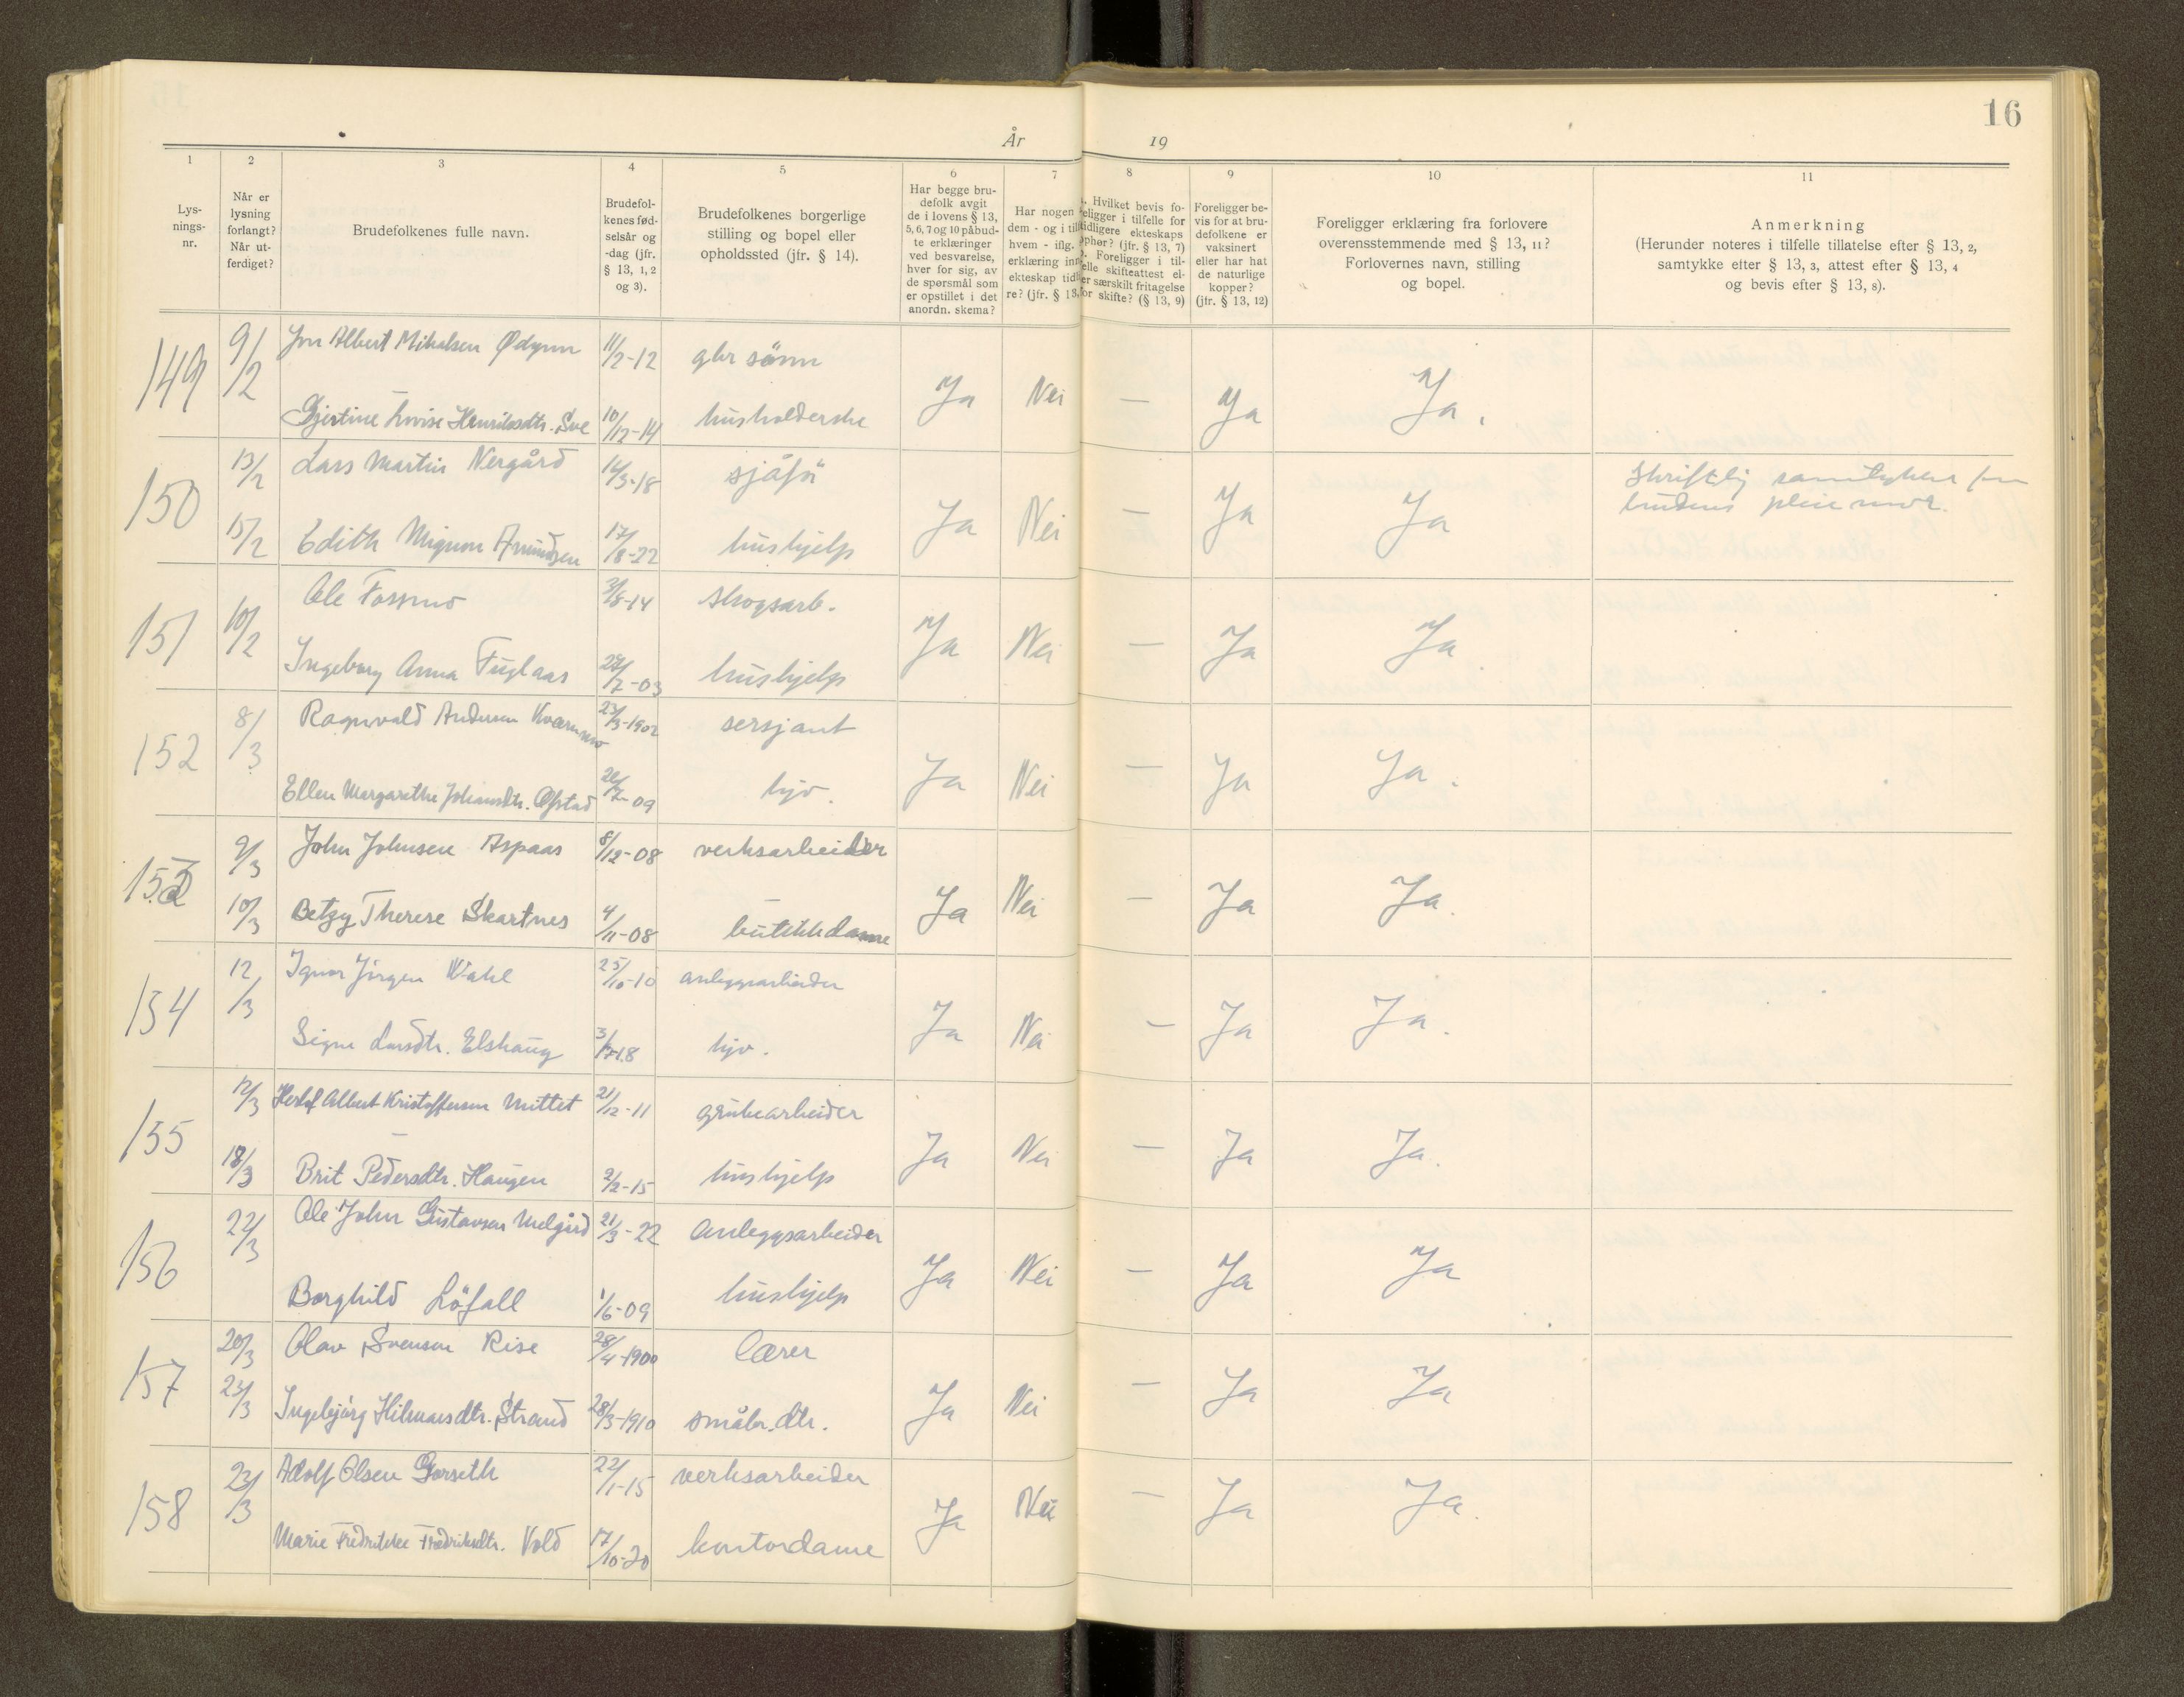 16
År 19
1 2 3 4 5 6 7 8 9 10 11
Lys-
nings-
nr.
Når er
lysning
forlangt?
Når ut-
ferdiget?
Brudefolkenes fulle navn.
Brudefol-
kenes fød-
selsår og
-dag (jfr.
§ 13, 1, 2
og 3).
Brudefolkenes borgerlige
stilling og bopel eller
opholdssted (jfr. § 14).
Har begge bru-
defolk avgit
de i lovens § 13,
5, 6, 7 og 10 påbud-
te erklæringer
ved besvarelse,
hver for sig, av
de spørsmål som
er opstillet i det
anordn. skema?
Har nogen
dem - og i til
hvem - iflg.
erklæring inn
ekteskap tid
re? (jfr. § 13,
. Hvilket bevis fo-
religger i tilfelle for
tidligere ekteskaps
ophør? (jfr. § 13, 7)
. Foreligger i til-
elle skifteattest el-
er særskilt fritagelse
for skifte? (§ 13, 9)
Foreligger be-
vis for at bru-
defolkene er
vaksinert
eller har hat
de naturlige
kopper?
(jfr. § 13, 12)
Foreligger erklæring fra forlovere
overensstemmende med § 13, 11?
Forlovernes navn, stilling
og bopel.
Anmerkning
(Herunder noteres i tilfelle tillatelse efter § 13, 2,
samtykke efter § 13, 3, attest efter § 13, 4
og bevis efter § 13, 8).
149 9/2 Jon Albert Mikalsen Ødynn 11/2-12 gbr sønn
Gjertine Lovise Henriksdtr. Sve 10/12-14 husholderske Ja Nei — Ja Ja.
150 13/2 Lars Martin Nergård 14/3-18 sjåfør
15/2 Edith Mignon Amundsen 17/8-22 hushjelp Ja Nei — Ja Ja
Skriftlig samtykke fra
brudens pleiemor.
151 10/2 Ole Fossmo 3/8-14 skogsarb.
Ingeborg Anna Fuglaas 22/2-03 hushjelp Ja Nei — Ja Ja
152 8/3 Ragnvald Andersen Kværnmo 23/3-1902 sersjant
Ellen Margarethe Johansdtr. Øfstad 20/2-09 hjv. Ja Nei — Ja Ja.
153 9/3 John Johnsen Aspaas 8/12-08 verksarbeider
10/3 Betzy Therese Skartnes 4/11-08 butikkdame Ja Nei — Ja Ja.
154 12/3 Jørgen Wahl 25/10-10 anleggsarbeider
Signe Larsdtr. Elshaug 3/12-18 hjv. Ja Nei — Ja Ja.
155 12/3 Herlof Albert Kristoffersen Mittet 21/12-11 grubearbeider
18/3 Brit Pedersdtr. Haugen 2/2-15 hushjelp Ja Nei — Ja Ja.
156 22/3 Ole John Gustavsen Melgård 21/3-22 Anleggsarbeider
Borghild Löfall 1/6-09 hushjelp Ja Nei — Ja Ja
157 20/3 Olav Svensen Rise 28/4-1900 lærer
23/3 Ingebjørg Hilmarsdtr. Strand 28/3-1910 småbr.dtr. Ja Nei — Ja Ja
158 23/3 Adolf Olsen Gorseth 22/1-15 verksarbeider
Marie Fredrikke Fredriksdtr. Vold 17/10-20 kontordame Ja Nei — Ja Ja.